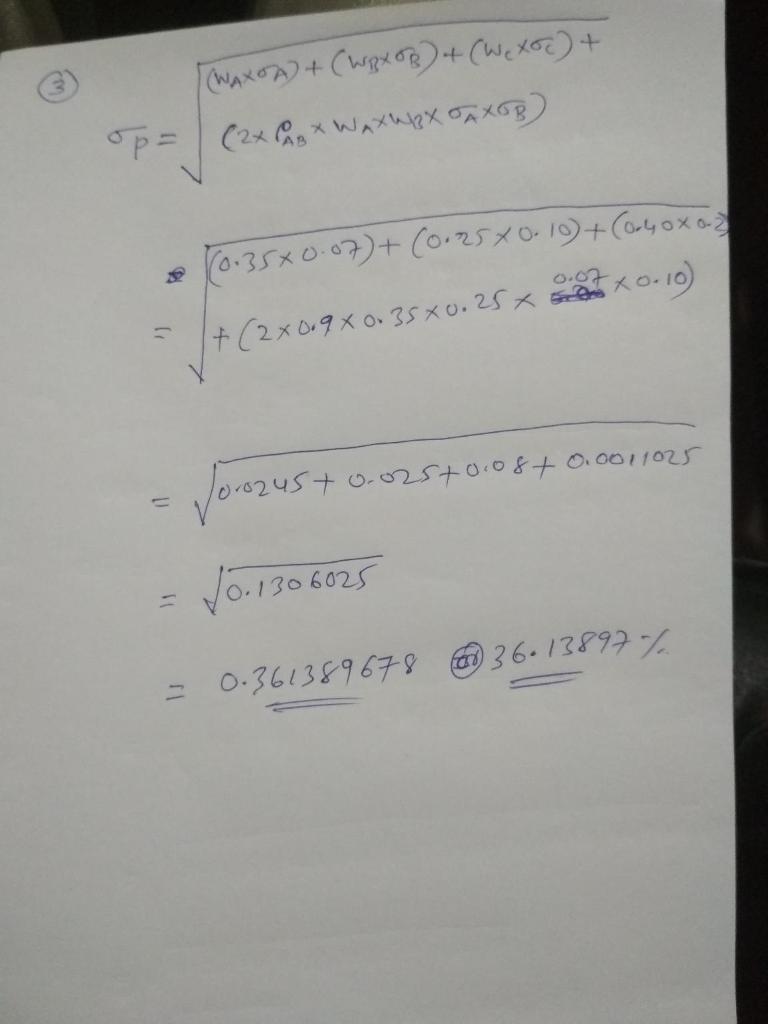 ③
(WA×σA) + (WB×σB) + (WC×σC) +
σp = √ (2× ρAB × WA×WB× σA×σB)
(0.35×0.07) + (0.25×0.10) + (0.40×0.2
= √ + (2×0.9×0.35×0.25× 0.07 ×0.10)
= √0.0245 + 0.025 + 0.08 + 0.0011025
= √0.1306025
= 0.361389678 or 36.13897%